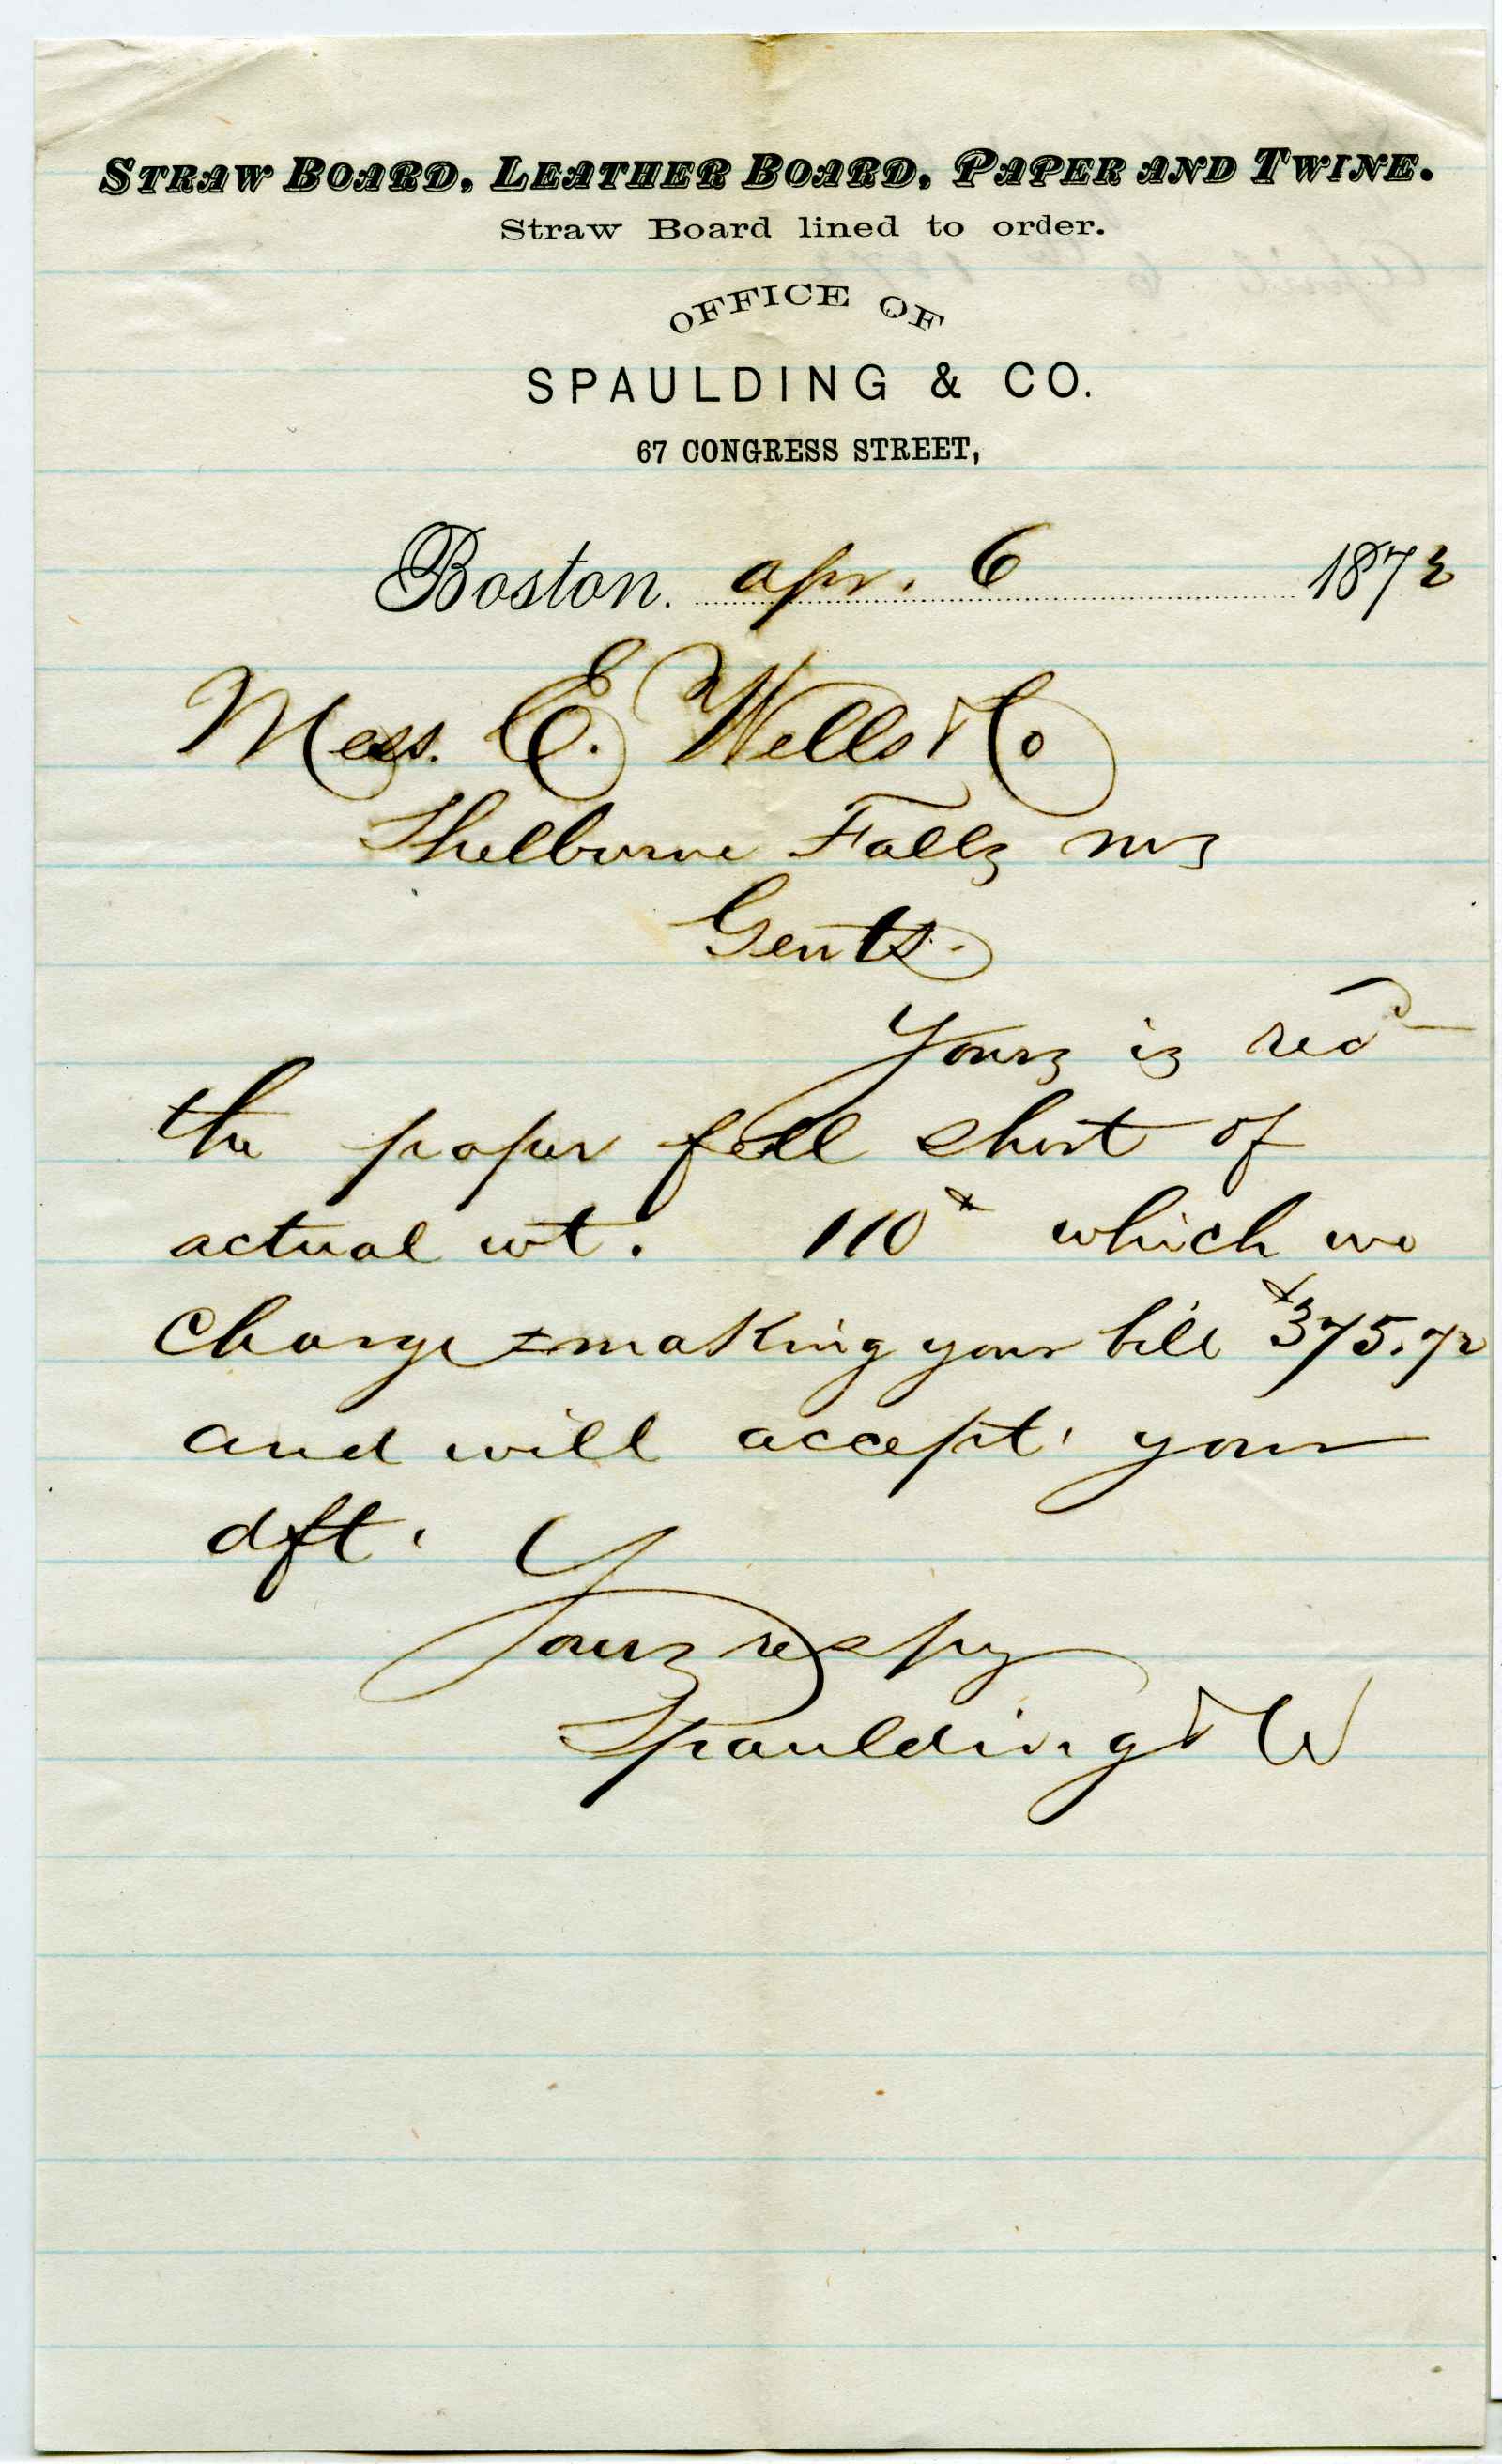 STRAW BOARD, LEATHER BOARD, PAPER AND TWINE.
Straw Board lined to order.
OFFICE OF
SPAULDING & CO.
67 CONGRESS STREET,
Boston. Apr. 6 1872
Mess. E. Wells & Co
Shelburne Falls Ms
Gents.
Yours is recd
the paper fell short of
actual wt. 110# which we
charge making your bill $375.72
and will accept your
dft.
Yours respy
Spaulding & Co